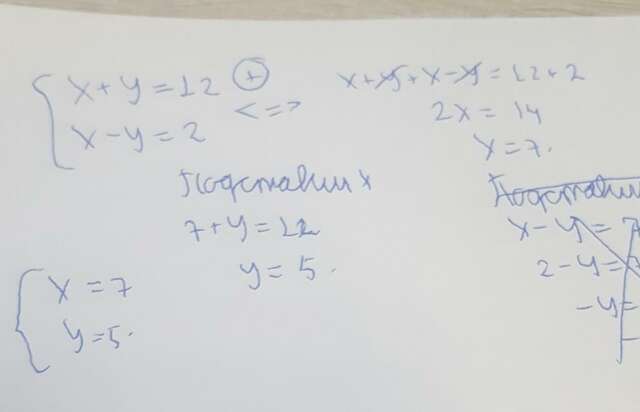 x+y=12 (+)
<=>
x-y=2
x+y+x-y=12+2
2x=14
x=7.
Подставим x
7+y=12
y=5.
x=7
y=5.
Подставим
x-y=
2-y=
-y=